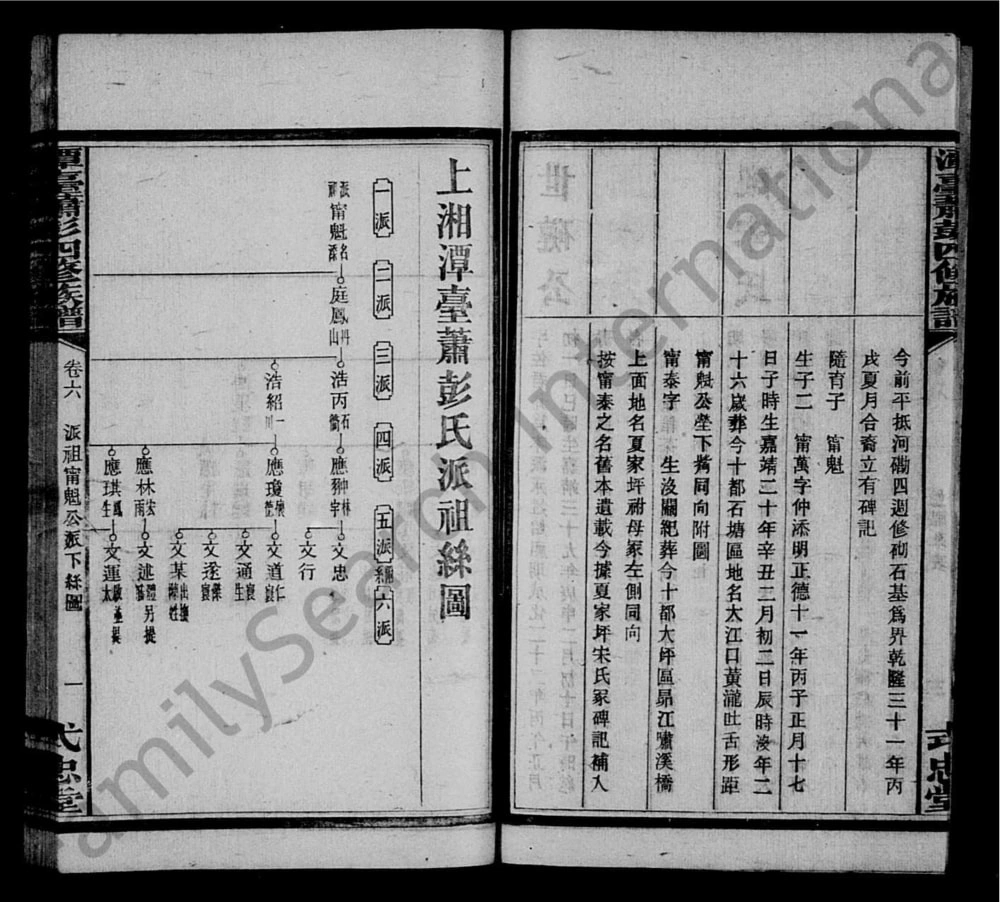 今前平抵河磡四週修砌石基爲界乾隆三十一年丙
戌夏月合裔立有碑記
隨育子　甯魁
生子二　甯萬字仲添明正德十一年丙子正月十七
日子時生嘉靖二十年辛丑三月初二日辰時沒年二
十六歲葬今十都石塘區地名大江口黃瀧吐舌形距
甯魁公塋下觜同向附圖
甯泰字　生沒闕紀葬今十都大坪區昴江嘯溪橋
上面地名夏家坪祔母冢左側同向
按甯泰之名舊本遺載今據夏家坪宋氏冢碑記補入
上湘潭臺蕭彭氏派祖綫圖
一派
二派
三派
四派
五派
六派
派祖甯魁名
庭鳳丹山
浩丙石
應翀林宇
文忠
文行
浩紹一
應瓊
文道仁寰
文通寰
文遂寰
文某出撫陳姓
應林宏雨
文述
應琪鳳生
文運
潭臺蕭彭四修族譜
卷六
派祖甯魁公派下綫圖
一
式忠堂
FamilySearch International